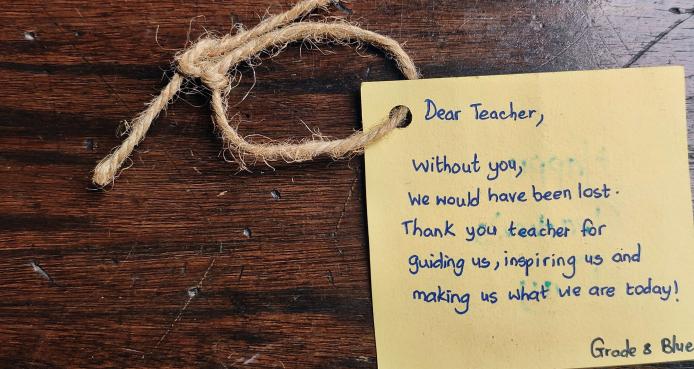 Dear Teacher,
Without you,
we would have been lost.
Thank you teacher for
guiding us, inspiring us and
making us what we are today!
Grade 8 Blue